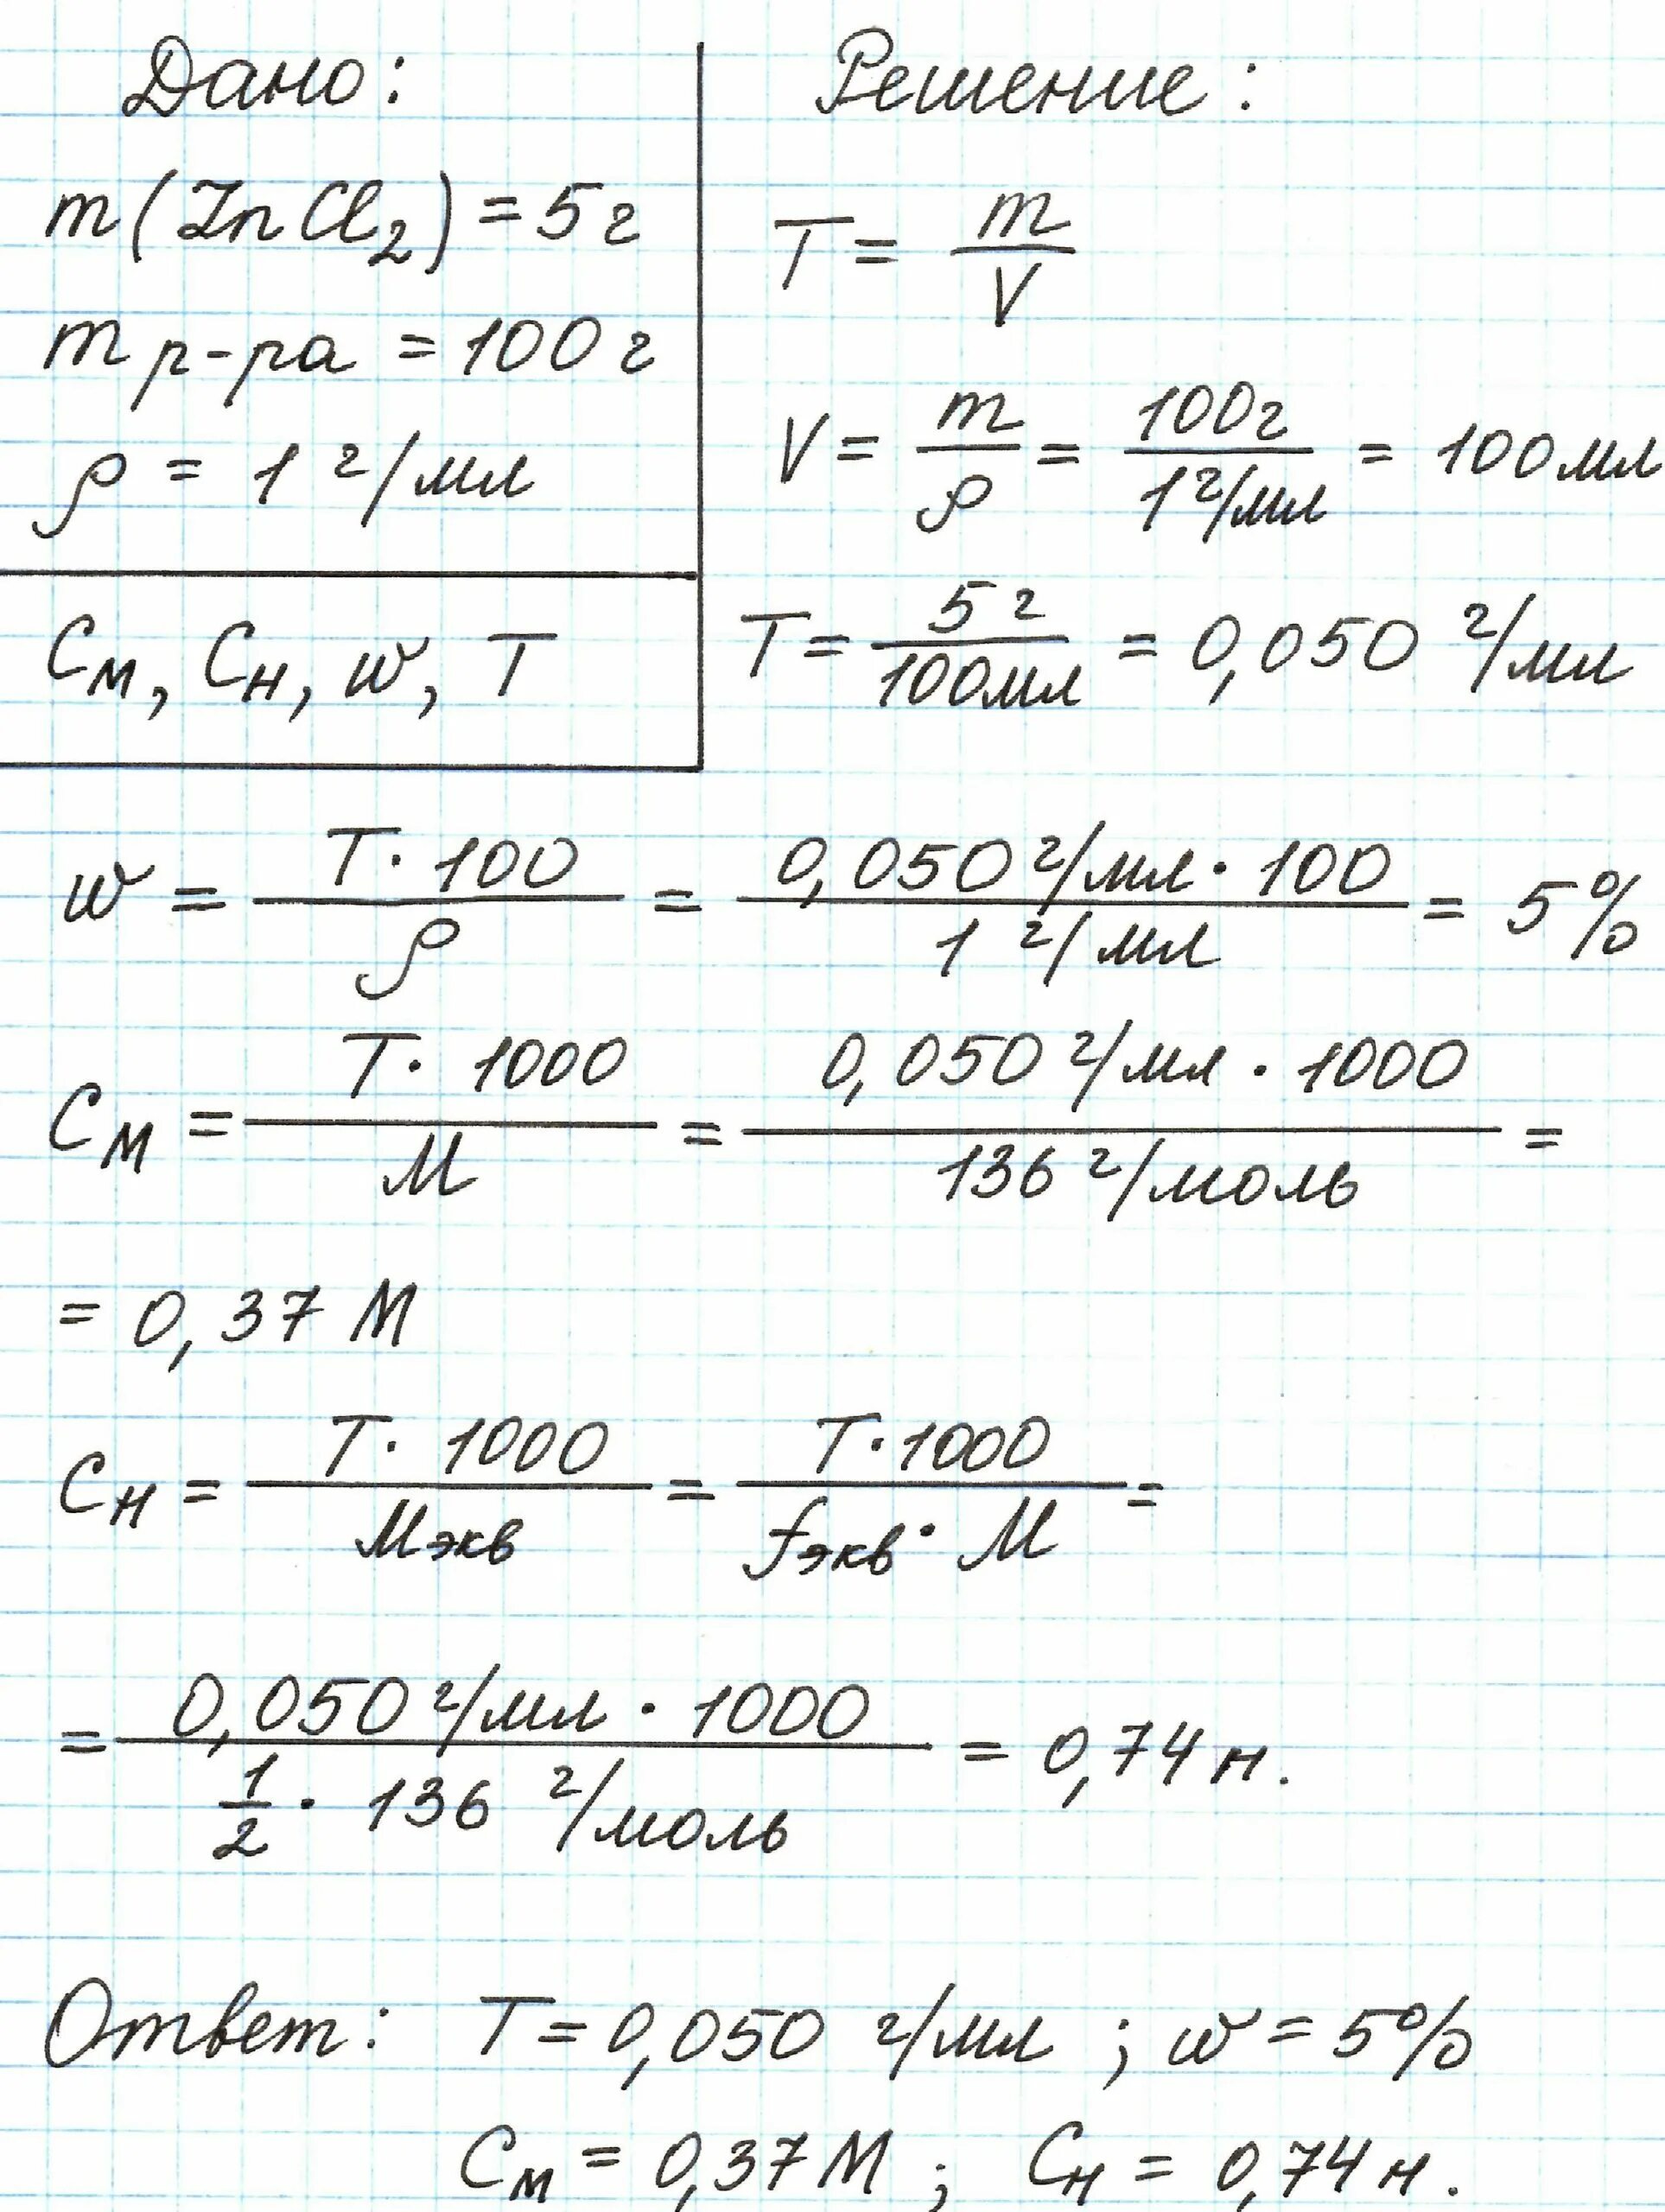 Дано:
m(ZnCl₂) = 5 г
m р-ра = 100 г
ρ = 1 г/мл
Cм, Cн, w, T
Решение:
T = m/V
V = m/ρ = 100г/1г/мл = 100мл
T = 5 г/100мл = 0,050 г/мл
w = T · 100/ρ = 0,050 г/мл · 100/1 г/мл = 5%
Cм = T · 1000/M = 0,050 г/мл · 1000/136 г/моль =
= 0,37 M
Cн = T · 1000/Mэкв = T · 1000/fэкв · M =
= 0,050 г/мл · 1000/½ · 136 г/моль = 0,74 н.
Ответ: T = 0,050 г/мл ; w = 5%
Cм = 0,37 M ; Cн = 0,74 н.